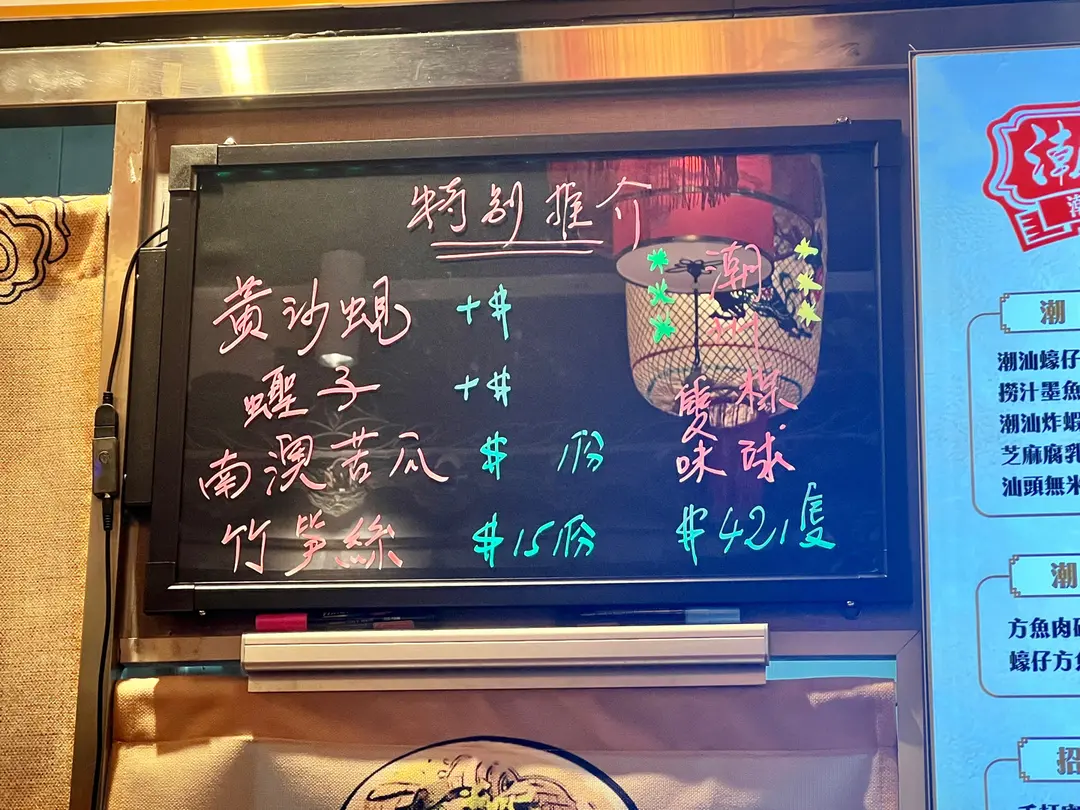 特别推介
黃沙蜆 +$
蟶子 +$
南澳苦瓜 $ 份
竹笋絲 $15/份
潮
州
雙樑
味球
$42/隻
潮
潮
潮汕蠔仔
撈汁墨魚
潮汕炸蝦
芝麻腐乳
汕頭無米
潮
方魚肉
蠔仔方魚
招